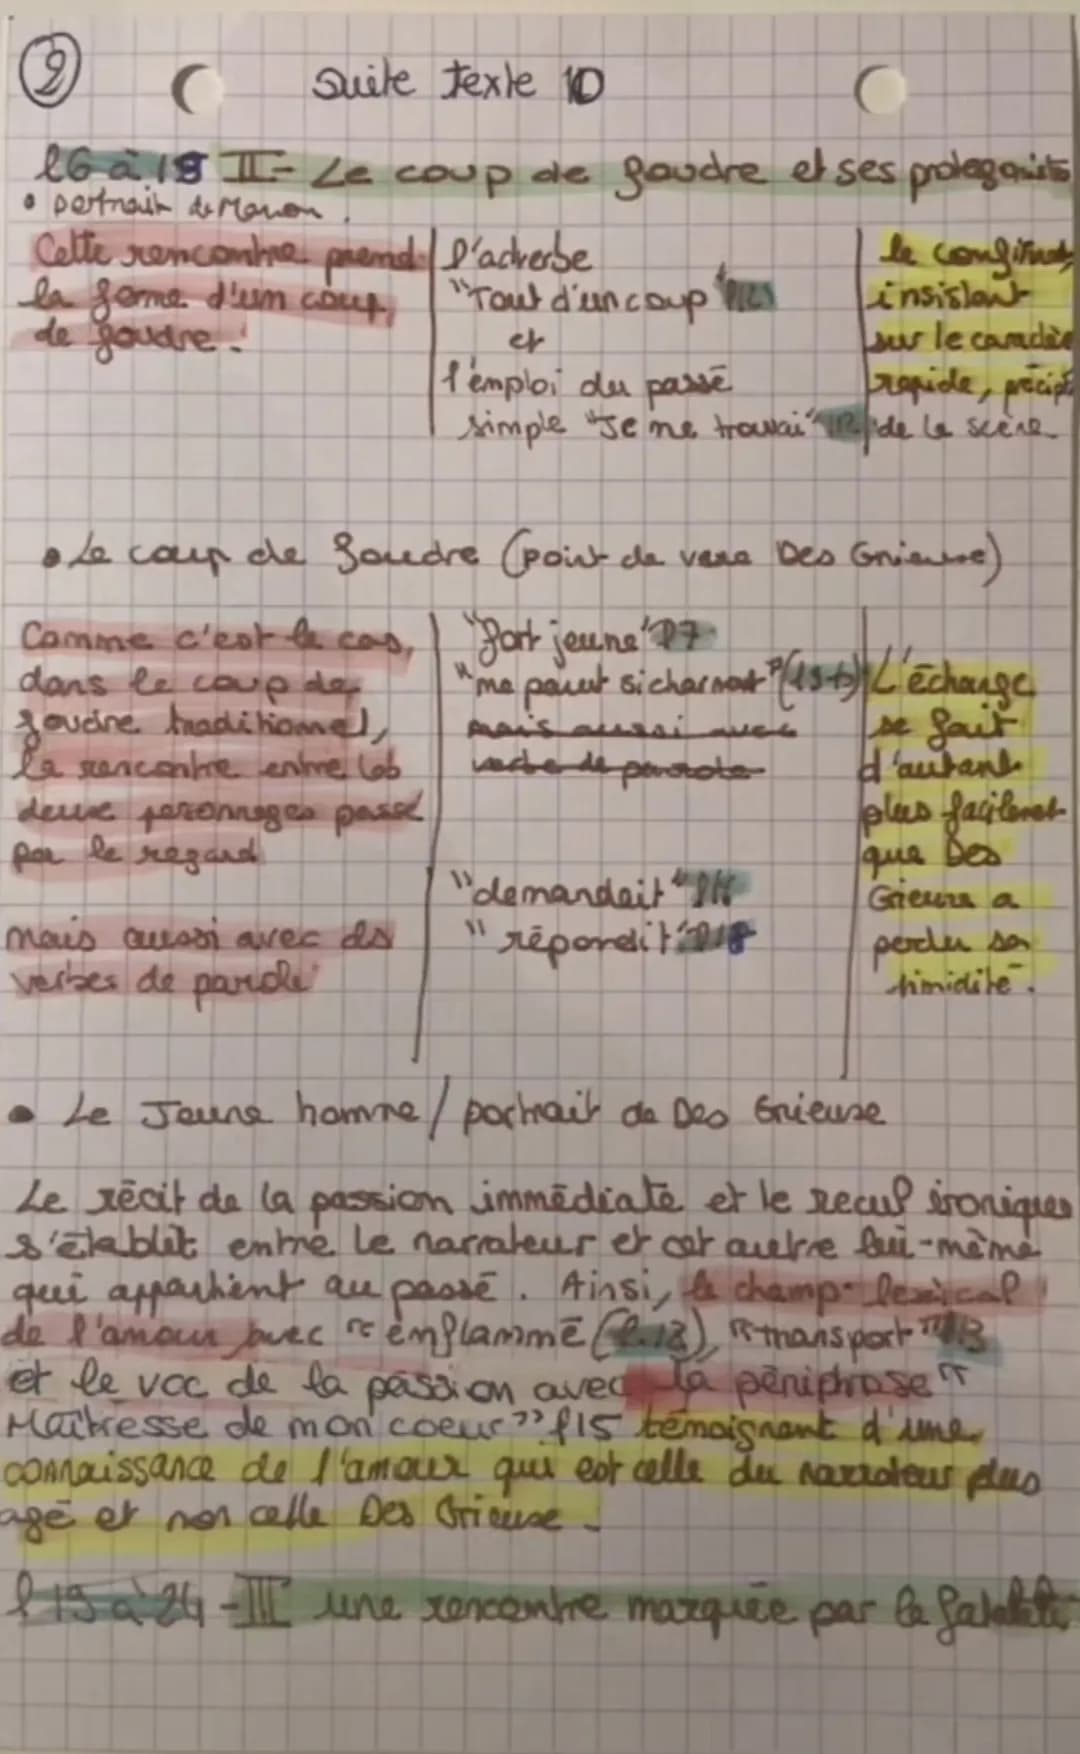 2
Suite texte 10
l6 à 18 II- Le coup de foudre et ses protagonists
• portrait de Manon.
Cette rencontre prend
la forme d'un coup
de foudre.
l'adverbe
"Tout d'un coup"
et
l'emploi du passé
simple "Je me trouvai" l12
le confirment
insistant
sur le caractère
rapide, précipi
de la scène
• Le coup de foudre (point de vue Des Grieuxe)
Comme c'est le cas,
dans le coup de
foudre traditionnel,
la rencontre entre les
deux personnages passe
par le regard
mais aussi avec ds
verbes de parole
"fort jeune" l7
"me parut si charmant"
mais aussi avec
verbe de parole
"demandait" l16
"répondit" l18
L'échange
se fait
d'autant
plus facilemet
que Des
Grieux a
perdu sa
timidité.
• Le Jeune homme / portrait de Des Grieuxe
Le récit de la passion immédiate et le recul ironiques
s'établit entre le narrateur et cet autre lui-même
qui appartient au passé. Ainsi, le champ-lexical
de l'amour avec "enflammé (l.12), "transport" l13
et le voc de la passion avec la périphrase "
Maîtresse de mon coeur" l15 témoignant d'une
connaissance de l'amour qui est celle du narrateur plus
agé et non celle Des Grieuxe.
l 19 à 24 - III une rencontre marquée par la fatalité